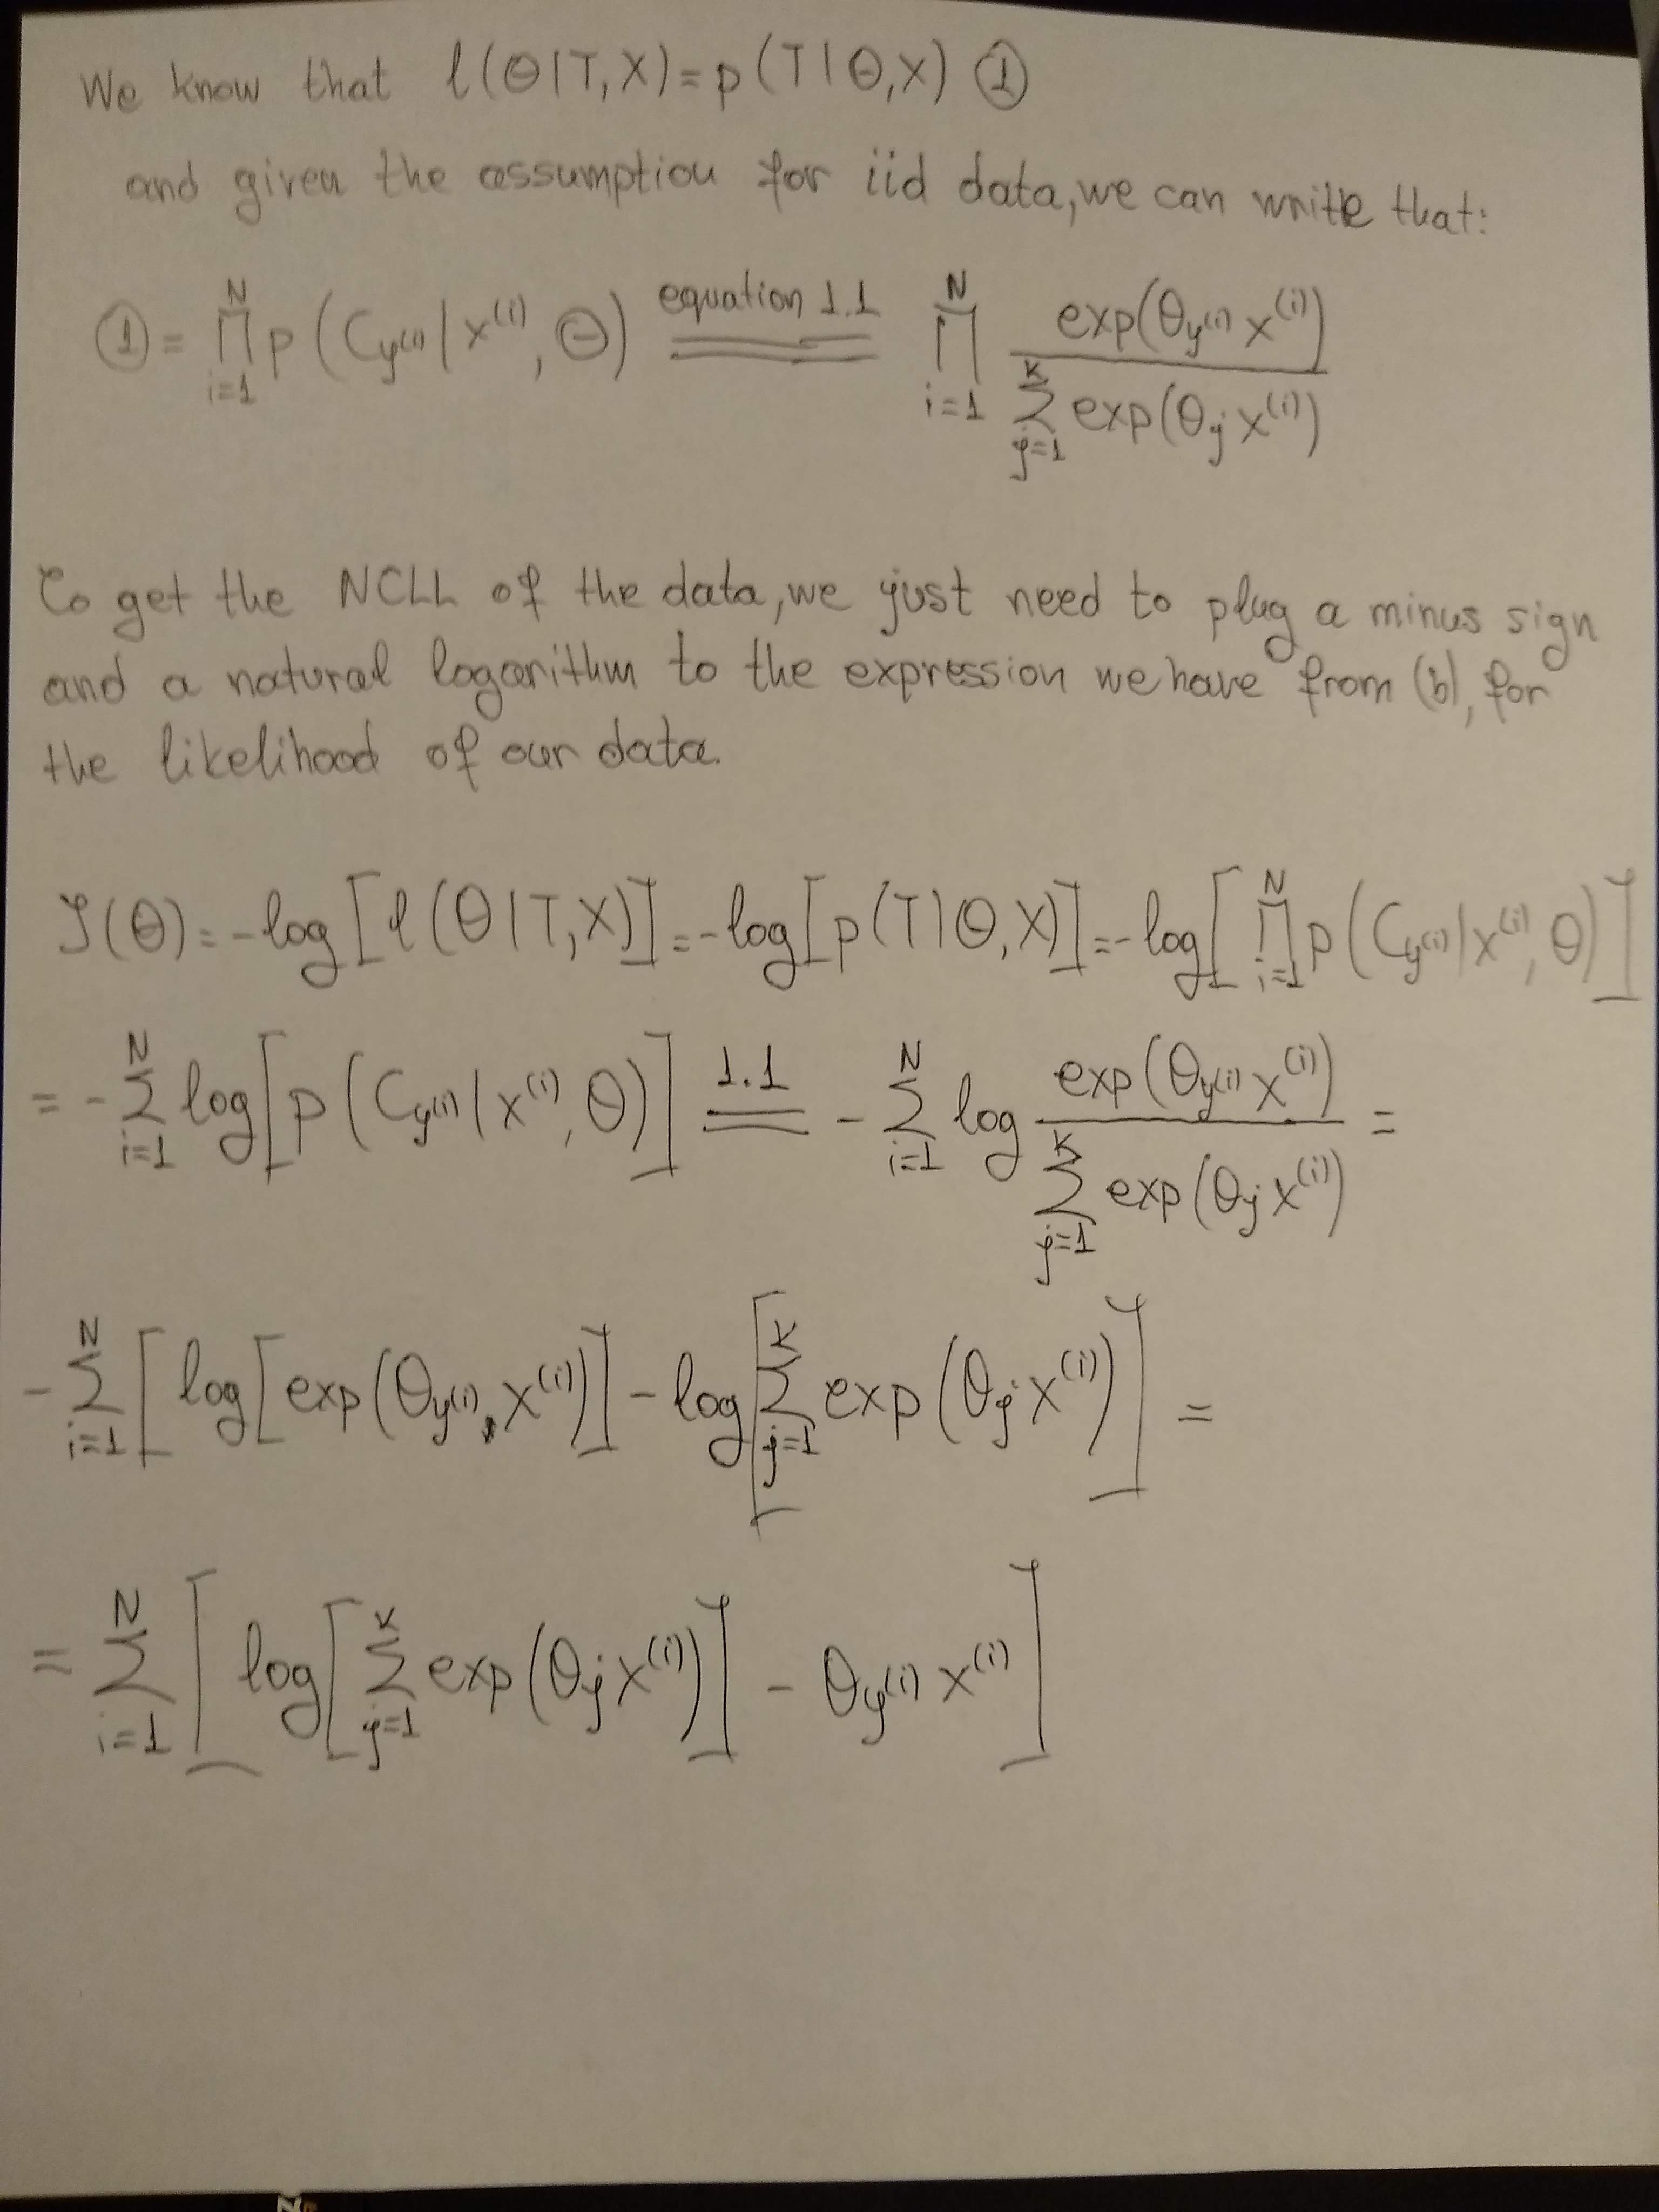 We know that l(Θ|T,X)=p(T|Θ,X) ①
and given the assumption for iid data, we can write that:
① = ∏_{i=1}^{N} p(C_{y^{(i)}}|x^{(i)},Θ) \overset{equation 1.1}{=} ∏_{i=1}^{N} \frac{exp(θ_{y^{(i)}} x^{(i)})}{∑_{j=1}^{K} exp(θ_j x^{(i)})}
To get the NCLL of the data, we just need to plug a minus sign
and a natural logarithm to the expression we have from (b), for
the likelihood of our data.
J(Θ)=-log[l(Θ|T,X)]=-log[p(T|Θ,X)]=-log[∏_{i=1}^{N} p(C_{y^{(i)}}|x^{(i)},Θ)]
= -∑_{i=1}^{N} log[p(C_{y^{(i)}}|x^{(i)},Θ)] \overset{1.1}{=} -∑_{i=1}^{N} log \frac{exp(θ_{y^{(i)}} x^{(i)})}{∑_{j=1}^{K} exp(θ_j x^{(i)})} =
-∑_{i=1}^{N} [log[exp(θ_{y^{(i)}} x^{(i)})] - log[∑_{j=1}^{K} exp(θ_j x^{(i)})] =
= ∑_{i=1}^{N} [log[∑_{j=1}^{K} exp(θ_j x^{(i)})] - θ_{y^{(i)}} x^{(i)}]